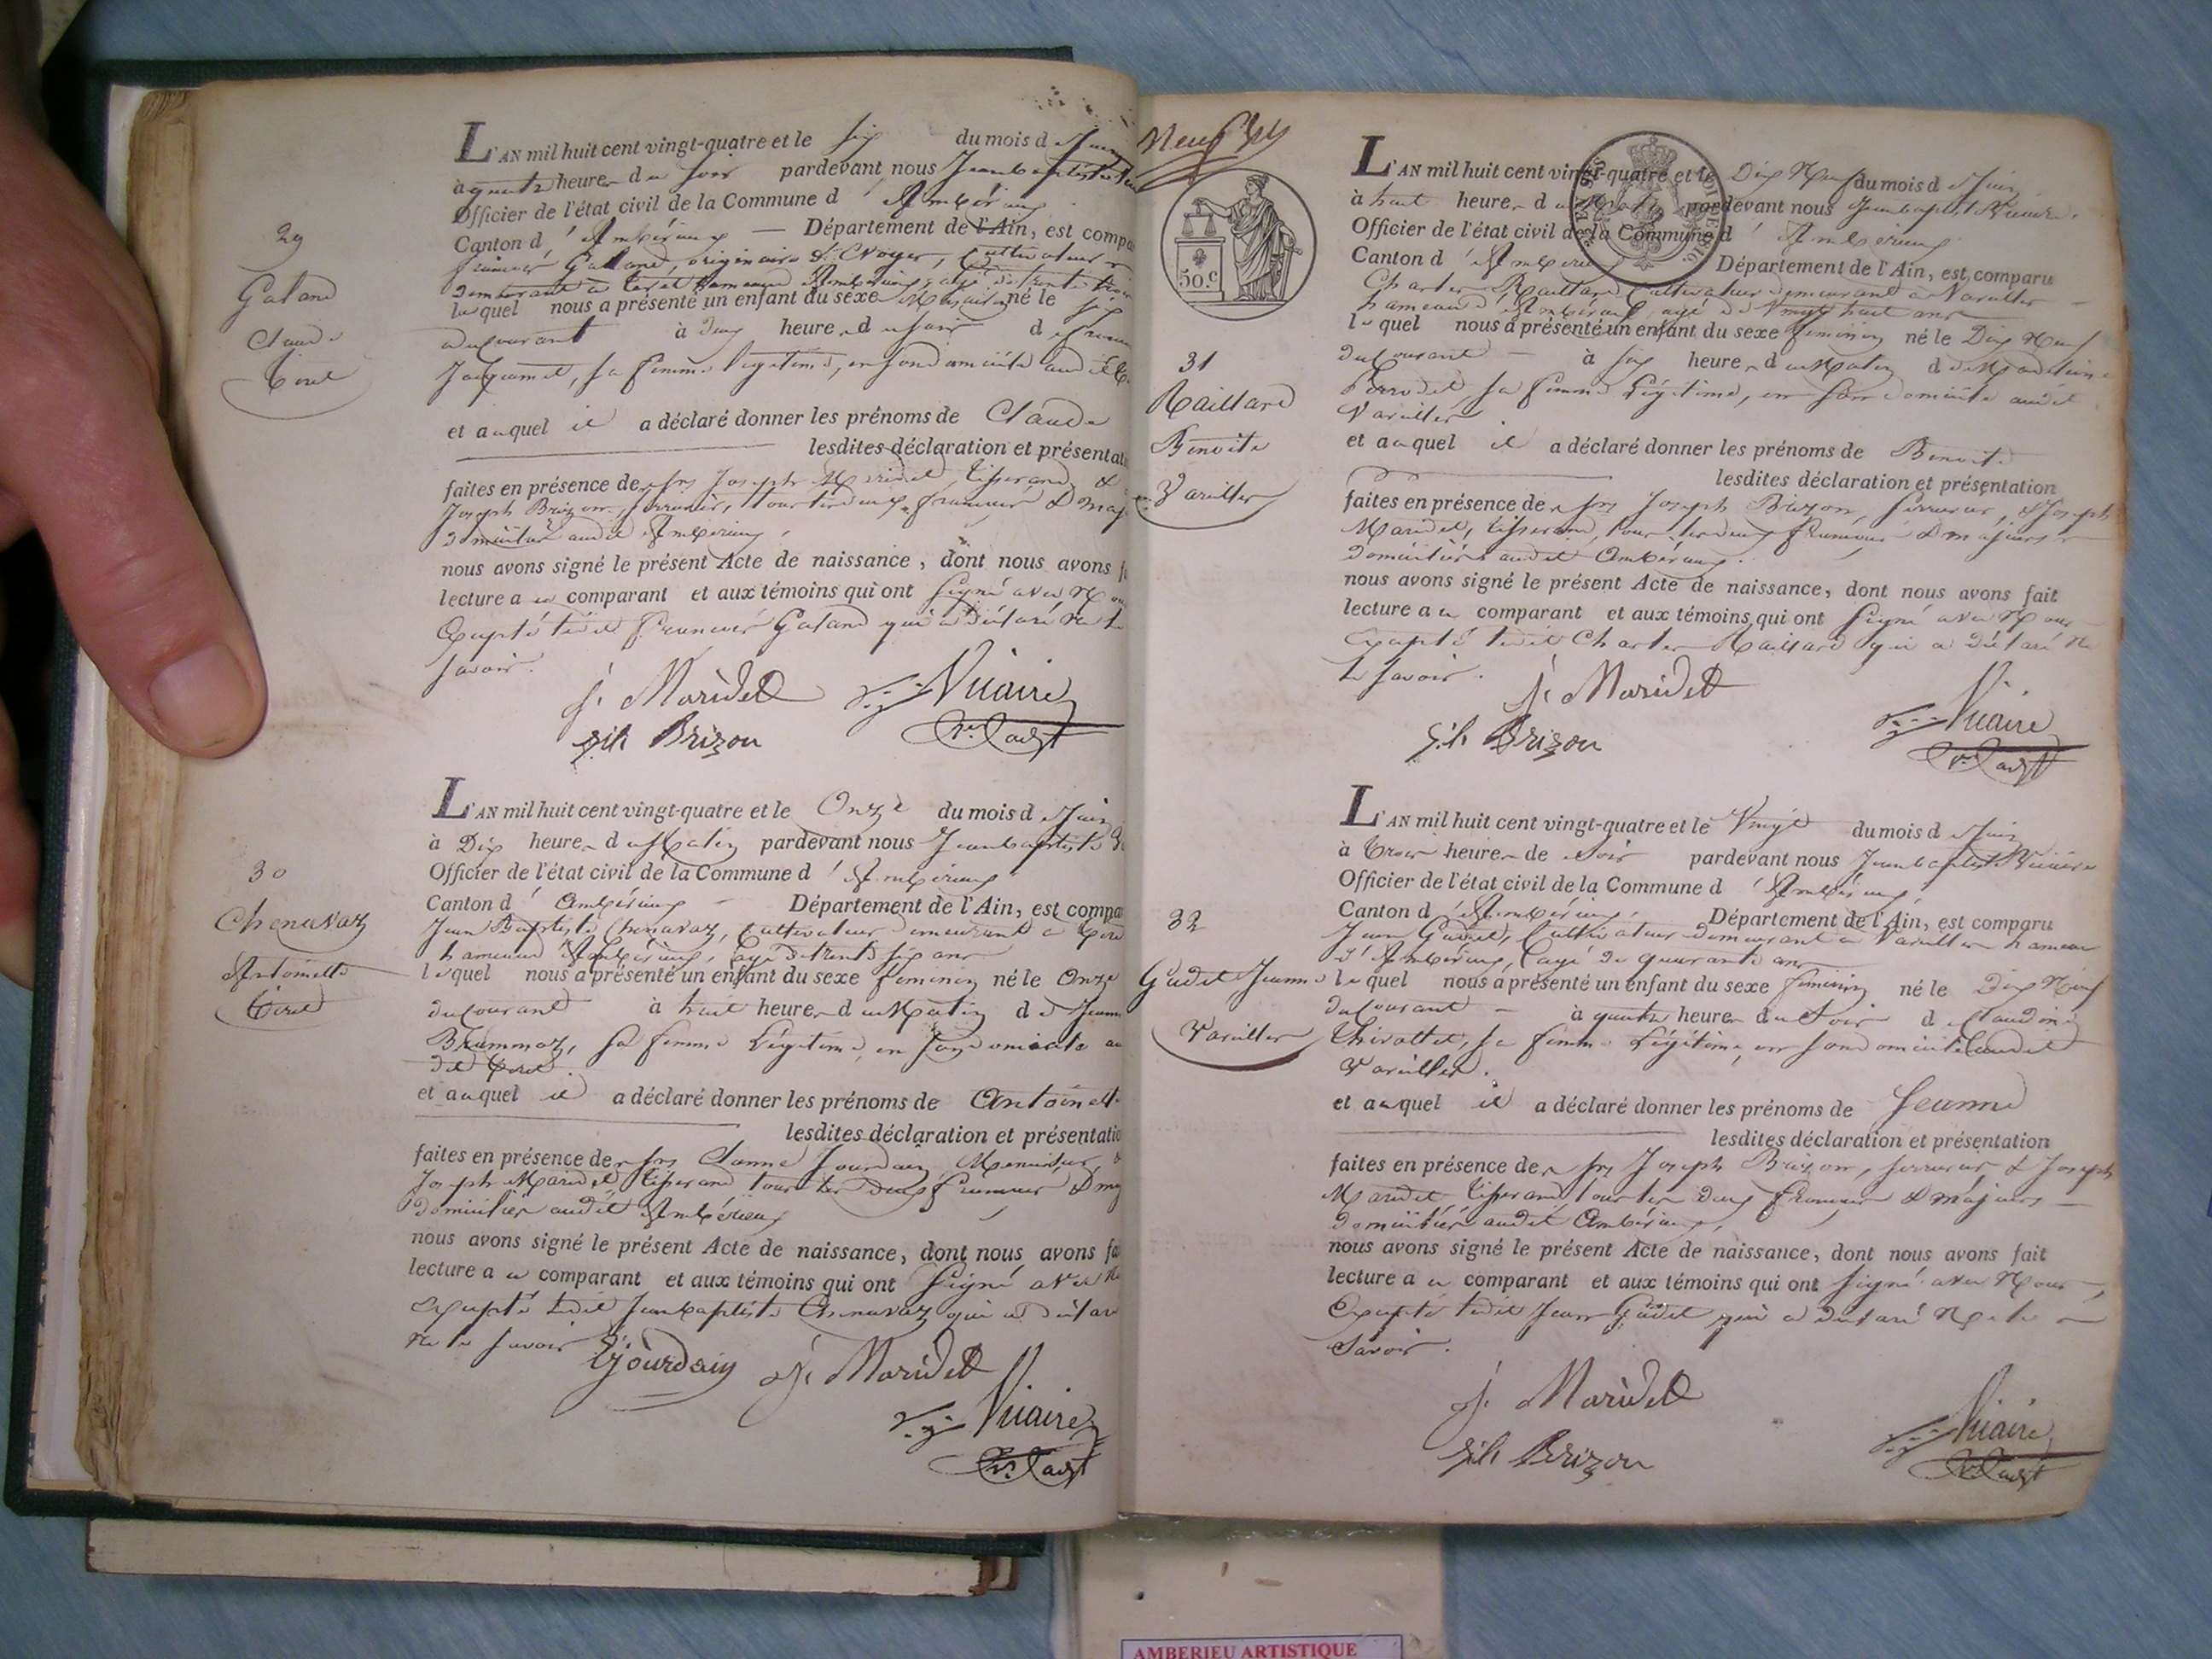 29
Galand
Claude
Tiret
L'AN mil huit cent vingt-quatre et le six du mois de Juin
à quatre heures du soir pardevant nous Jean baptiste
Officier de l'état civil de la Commune d'Ambérieux
Canton d'Ambérieux — Département de l'Ain, est compa
Galland, originaire d' cultivateur
demeurant à Tiret hameau d'Ambérieux, agé de trente trois
lequel nous a présenté un enfant du sexe Masculin né le six
du Courant à deux heures du soir de
Jacquemet, sa femme légitime, en son domicile audit
et auquel il a déclaré donner les prénoms de Claude
lesdites déclaration et présentat
faites en présence de Srs Joseph Maridet, tisserand &
Joseph Brizon, serrurier, tous les deux français & maj
domiciliés audit Ambérieux,
nous avons signé le présent Acte de naissance, dont nous avons f
lecture au comparant et aux témoins qui ont signé avec Nou
Excepté ledit Galand qui a déclaré ne le
savoir.
j. Maridet Vicaire
jh Brizon
30
Chenavaz
Antoinette
Tiret
L'AN mil huit cent vingt-quatre et le Onze du mois de Juin
à Dix heures du Matin pardevant nous Jean baptiste
Officier de l'état civil de la Commune d'Ambérieux
Canton d'Ambérieux - Département de l'Ain, est compa
Jean Baptiste Chenavaz, Cultivateur demeurant à Tiret
hameau d'Ambérieux, agé de trente six ans
lequel nous a présenté un enfant du sexe féminin né le Onze
du Courant à huit heures du Matin de Jeanne
Brammaz, sa femme Légitime, en son domicile au
dit Tiret.
et auquel il a déclaré donner les prénoms de Antoinette
lesdites déclaration et présentatio
faites en présence de Srs Jourdain, Menuisier, &
Joseph Maridet, tisserand tous les deux français & maj
domiciliés audit Ambérieux
nous avons signé le présent Acte de naissance, dont nous avons fa
lecture au comparant et aux témoins qui ont signé avec
Excepté ledit Jean baptiste Chenavaz qui a déclaré
ne le savoir
Jourdain j. Maridet
Vicaire
50 c.
31
Raillard
Benoite
Vareilles
L'AN mil huit cent vingt-quatre et le Dix Neuf du mois de Juin
à huit heures du Matin pardevant nous Jean baptiste Vicaire
Officier de l'état civil de la Commune d'Ambérieux
Canton d'Ambérieux Département de l'Ain, est comparu
Charles Raillard Cultivateur demeurant à Vareilles
hameau d'Ambérieux, agé de Vingt huit ans
lequel nous a présenté un enfant du sexe féminin né le Dix Neuf
du Courant — à six heures du Matin de
Perrodet, sa femme Légitime, en son domicile audit
Vareilles
et auquel il a déclaré donner les prénoms de Benoite
lesdites déclaration et présentation
faites en présence de Srs Joseph Brizon, serrurier, & Joseph
Maridet, tisserand, tous les deux français & majeurs
domiciliés audit Ambérieux.
nous avons signé le présent Acte de naissance, dont nous avons fait
lecture au comparant et aux témoins qui ont signé avec Nous
Excepté ledit Charles Raillard qui a déclaré ne
le savoir.
j. Maridet
Vicaire
jh Brizon
32
Gudet Jeanne
Vareilles
L'AN mil huit cent vingt-quatre et le Vingt du mois de Juin
à trois heures de soir pardevant nous Jean baptiste Vicaire
Officier de l'état civil de la Commune d'Ambérieux
Canton d'Ambérieux, Département de l'Ain, est comparu
Jean Gudet, Cultivateur demeurant à Vareilles hameau
d'Ambérieux, agé de quarante ans
lequel nous a présenté un enfant du sexe féminin né le Dix Neuf
du Courant — à quatre heures du Soir de Claudine
sa femme Légitime, en son domicile audit
Vareilles.
et auquel il a déclaré donner les prénoms de Jeanne
lesdites déclaration et présentation
faites en présence de Srs Joseph Brizon, serrurier, & Joseph
Maridet, tisserand tous les deux français & majeurs
domiciliés audit Ambérieux,
nous avons signé le présent Acte de naissance, dont nous avons fait
lecture au comparant et aux témoins qui ont signé avec Nous,
Excepté ledit Jean Gudet qui a déclaré ne le
savoir.
j. Maridet
Vicaire
jh Brizon
AMBERIEU ARTISTIQUE